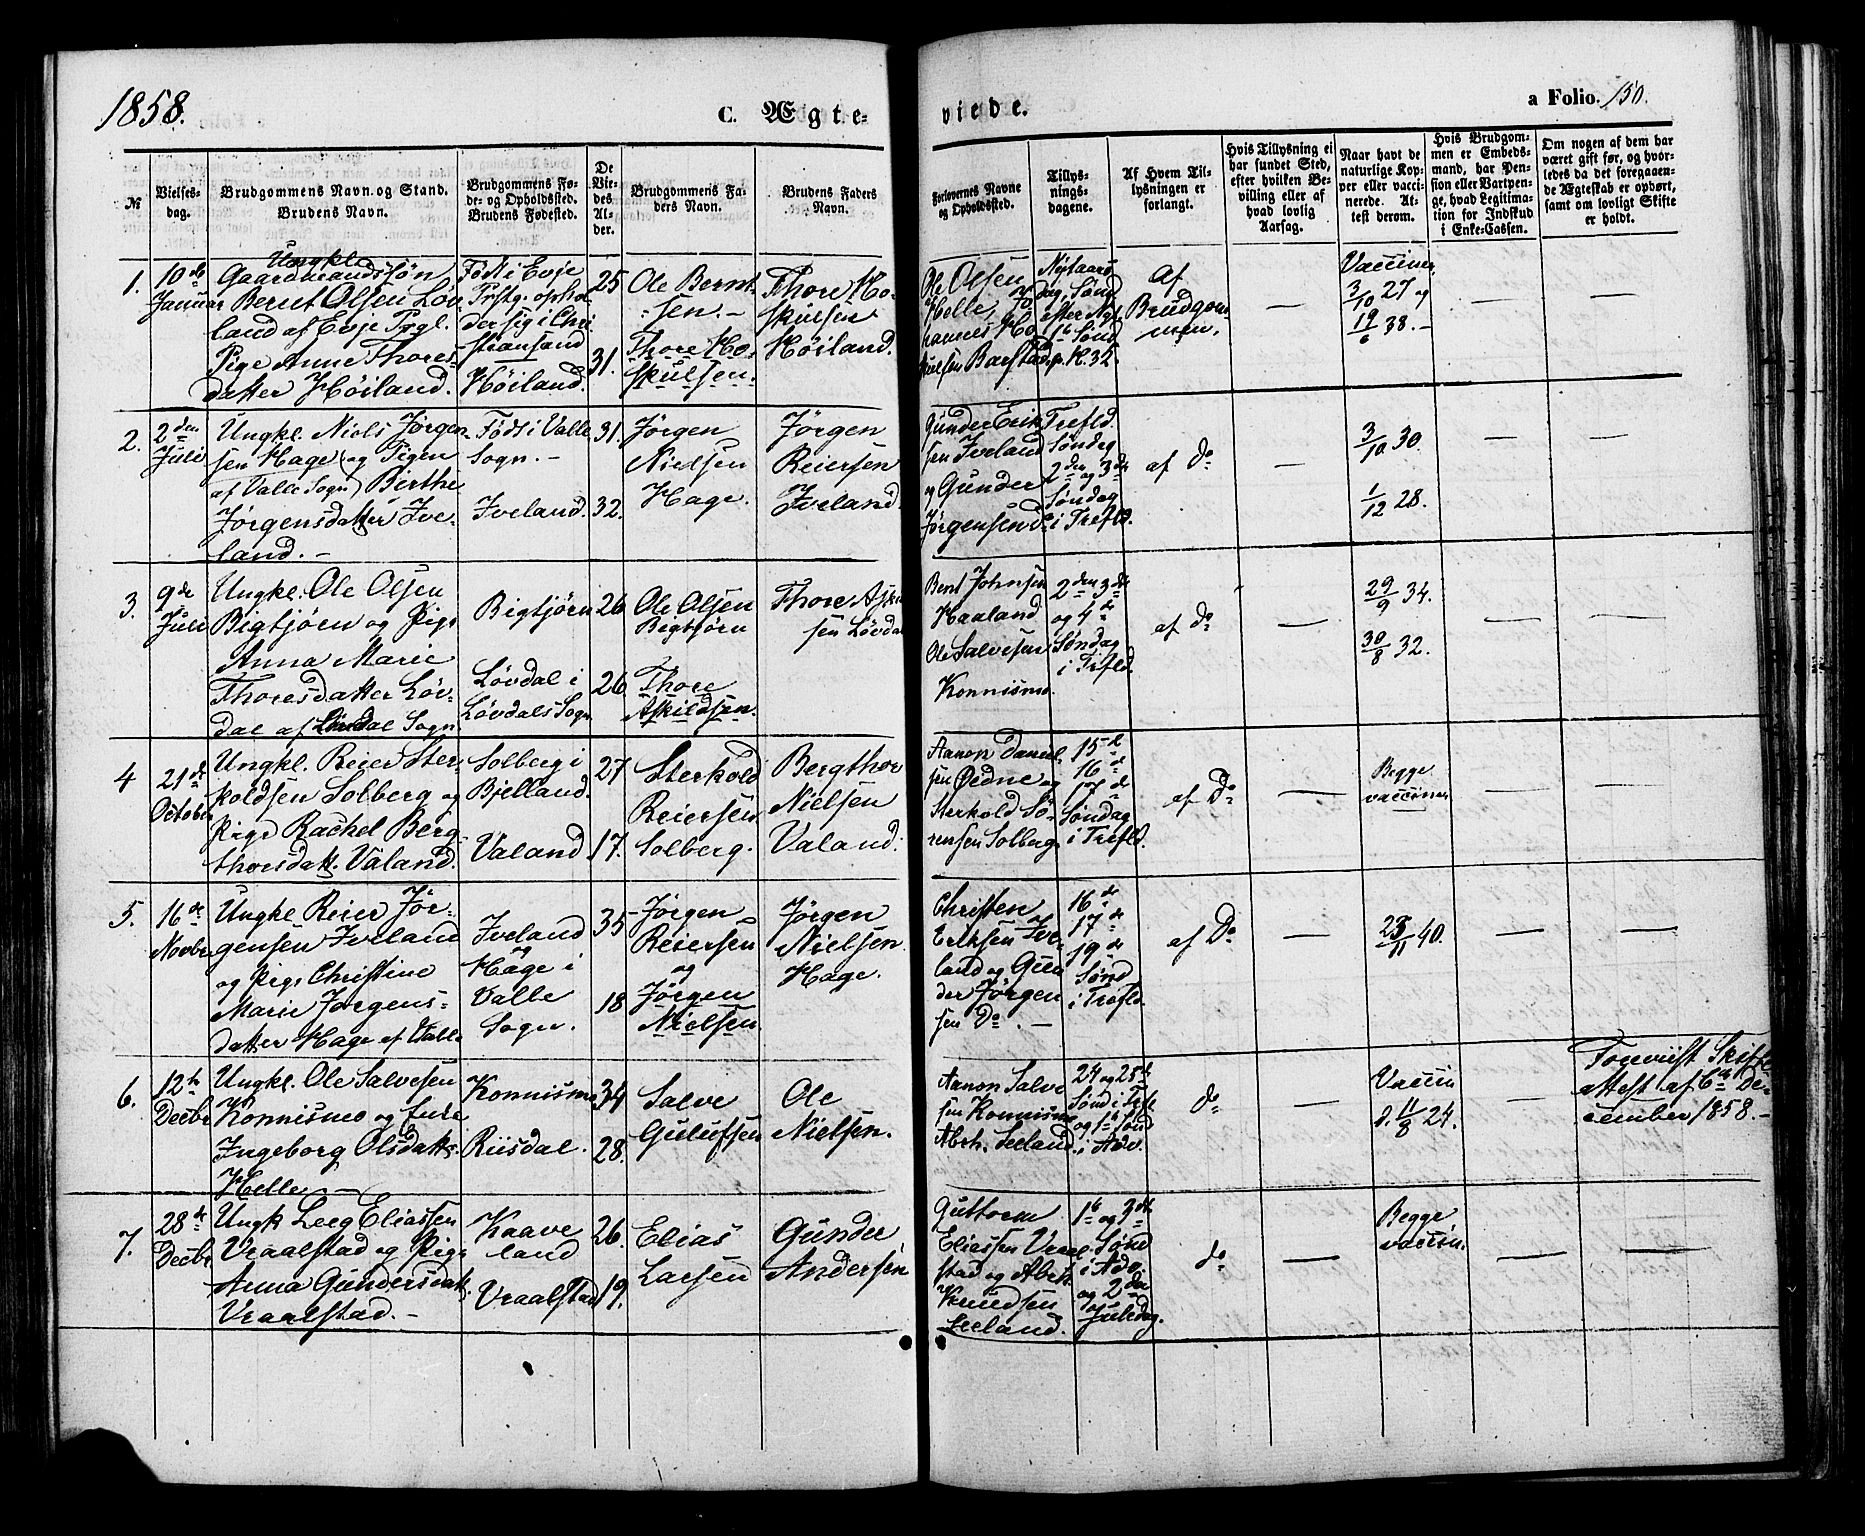 1858.
C. Ægte-
viede.
a Folio. 150.
№
Vielses-
dag.
Brudgommens Navn og Stand.
Brudens Navn.
Brudgommens Fø-
de- og Opholdssted.
Brudens Fødested.
De
Vie-
des
Al-
der.
Brudgommens Fa-
ders Navn.
Brudens Faders
Navn.
Forlovernes Navne
og Opholdssted.
Tillys-
nings-
dagene.
Af Hvem Til-
lysningen er
forlangt.
Hvis Tillysning ei
har fundet Sted,
efter hvilken Be-
villing eller af
hvad lovlig
Aarsag.
Naar havt de
naturlige Kop-
per eller vacci-
nerede. At-
test derom.
Hvis Brudgom-
men er Embeds-
mand, har Pen-
sion eller Vartpen-
ge, hvad Legitima-
tion for Indskud
i Enke-Cassen.
Om nogen af dem har
været gift før, og hvor-
ledes da det foregaaen-
de Ægteskab er ophørt,
samt om lovligt Skifte
er holdt.
1.
10de
Januar
Ungkle
Gaardmandssøn
Bernt Olsen Løv
land af Evje Prgl.
Pige Anne Thores-
datter Høiland.
Født i Evje
Prstg. ophol
der sig i Chri
stiansand
Høiland.
25
31.
Ole Bernt-
sen.-
Thore Ho-
skulsen.
Thore Ho-
skulsen
Høiland.
Ole Olsen
Helle,
hannes Ho
skulsen Barstad
Nytaars
dag, Sønd
efter Nyt
1te Sønd
p. H. 3 K.
Af
Brudgom
men.
—
Vacciner
3/10 27 og
19/6 38.-
—
—
2.
2den
Juli
Ungkl. Niels Jørgen-
sen Hage og Pigen
af Valle Sogn) Berthe
Jørgensdatter Ive-
land.-
Født i Valle
Sogn.-
Iveland.
31.
32.
Jørgen
Nielsen
Hage.
Jørgen
Reiersen
Iveland.
Gunder Erik
sen Iveland
og Gunder
Jørgensen do
Trefld.
Søndag
2den og 3de
Søndag
i Trefld.
af do
—
3/10 30.
1/12 28.
—
—
3.
9de
Juli
Ungkl. Ole Olsen
Bigtjørn og Pige
Anna Marie
Thoresdatter Løv-
dal af Sogn.
Bigtjørn
Løvdal i
Løvdals Sogn
26
26
Ole Olsen
Bigtjørn
Thore
Askildsen.
Thore Aski
sen Løvdal
Bent Johnsen
Haaland
Ole Salvesen
Konnismo.
2den 3de
og 4de
Søndag
i Trefld.
af do
—
29/9 34.
30/8 32.
—
—
4
21de
October
Ungkl. Reier Ster-
koldsen Solberg og
Pige Rachel Berg
thorsdatt. Valand.
Solberg i
Bjelland.
Valand
27
17.
Sterkold
Reiersen
Solberg.
Bergthor
Nielsen
Valand.
Aanon Daniel
sen Ødne og
Sterkold Sø-
rensen Solberg
15de
16de
17de
Søndag
i Trefld.
af Do
—
Begge
vacciner
—
—
5.
16de
Novbr
Ungkl Reier Jør-
gensen Iveland
og Pige Christine
Marie Jørgens-
datter Hage af Valle
Iveland
og
Hage i
Valle
Sogn.
35
18
Jørgen
Reiersen
og
Jørgen
Nielsen
Jørgen
Nielsen
Hage.
Christen
Eriksen Ive-
land og Gun
der Jørgen
sen Do.-
16de
17de
19de
Sønd
i Trefld
af Do
—
25/11 40.
—
—
6.
12te
Decbr
Ungkl. Ole Salvesen
Konnismo og Enke
Ingeborg Olsdatt.
Helle.-
Konnismo
Riisdal.
34
28.
Salve
Gulufsen
Ole
Nielsen.
Aanon Salve
sen Konnismo
Abrh. Leeland.
24 og 25de
Sønd i Trefl
og 1te Sønd
i Adv.
do
—
Vaccin
d. 11/8 24.
—
Foreviist Skifte
attest af 6te De-
cember 1858.-
7.
28de
Decbr
Ungk Leeg Eliassen
Vraalstad og Pige
Anna Gundersdatt.
Vraalstad.-
Kaave
land
Vraalstad
26.
19.
Elias
Larsen
Gunder
Andersen
Guttorm
Eliassen Vraal-
stad og Abrh.
Knudsen
Leeland.
1te og 3de
Sønd
i Adv.
og 2den
Juledag.
do
—
Begge
vaccin.
—
—